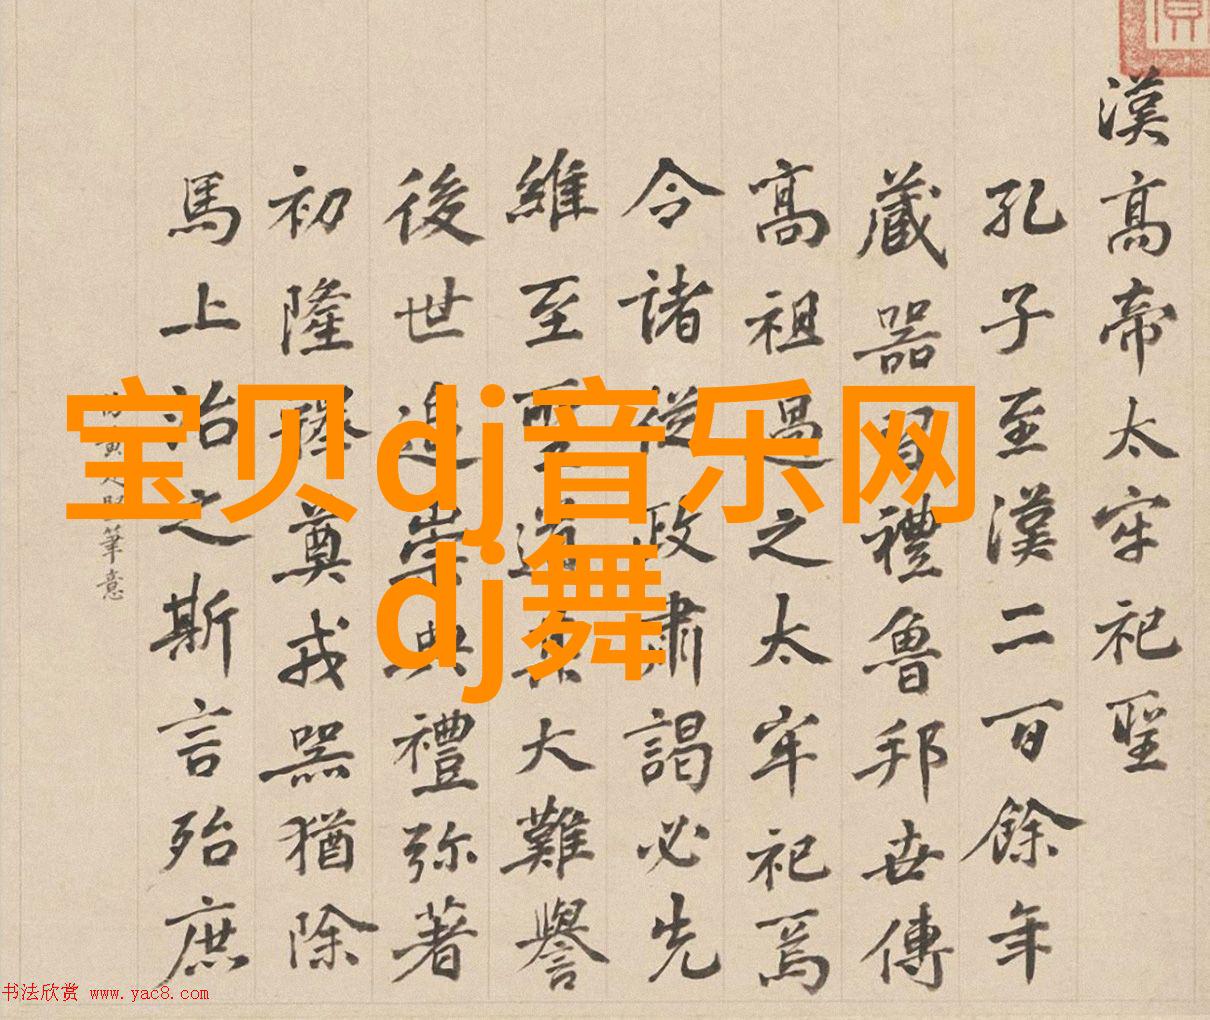 漢高帝太牢祀聖
孔子至漢二百餘年
藏器習禮魯邦世傳
高祖過之太牢祀焉
令諸從政肅謁必先
維至聖道其大難譽
後世追崇典禮弥著
初隆釋奠戎器猶除
馬上治之斯言殆庶
筆意
宝贝dj音乐网
dj舞
书法欣赏 www.yac8.com